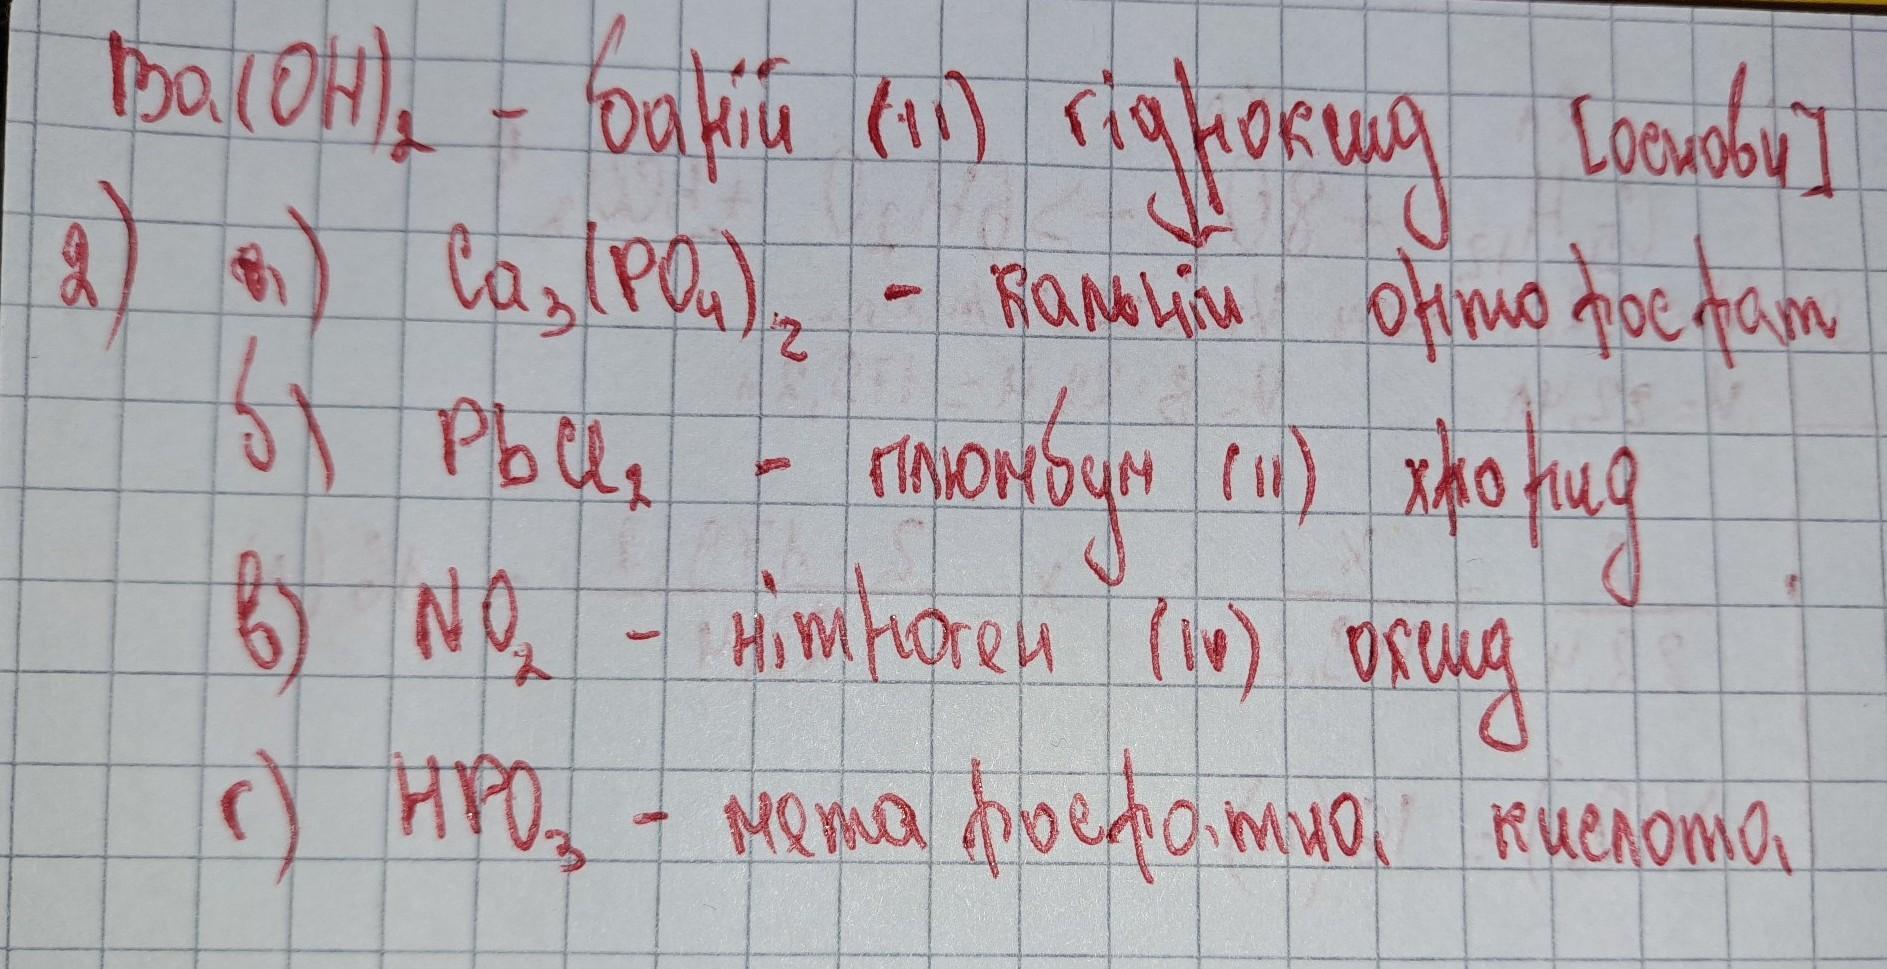 Ba(OH)₂ - барій (II) гідроксид [основи]
2) а) Ca₃(PO₄)₂ - кальцій ортофосфат
б) PbCl₂ - плюмбум (II) хлорид
в) NO₂ - нітроген (IV) оксид
г) HPO₃ - метафосфатна кислота